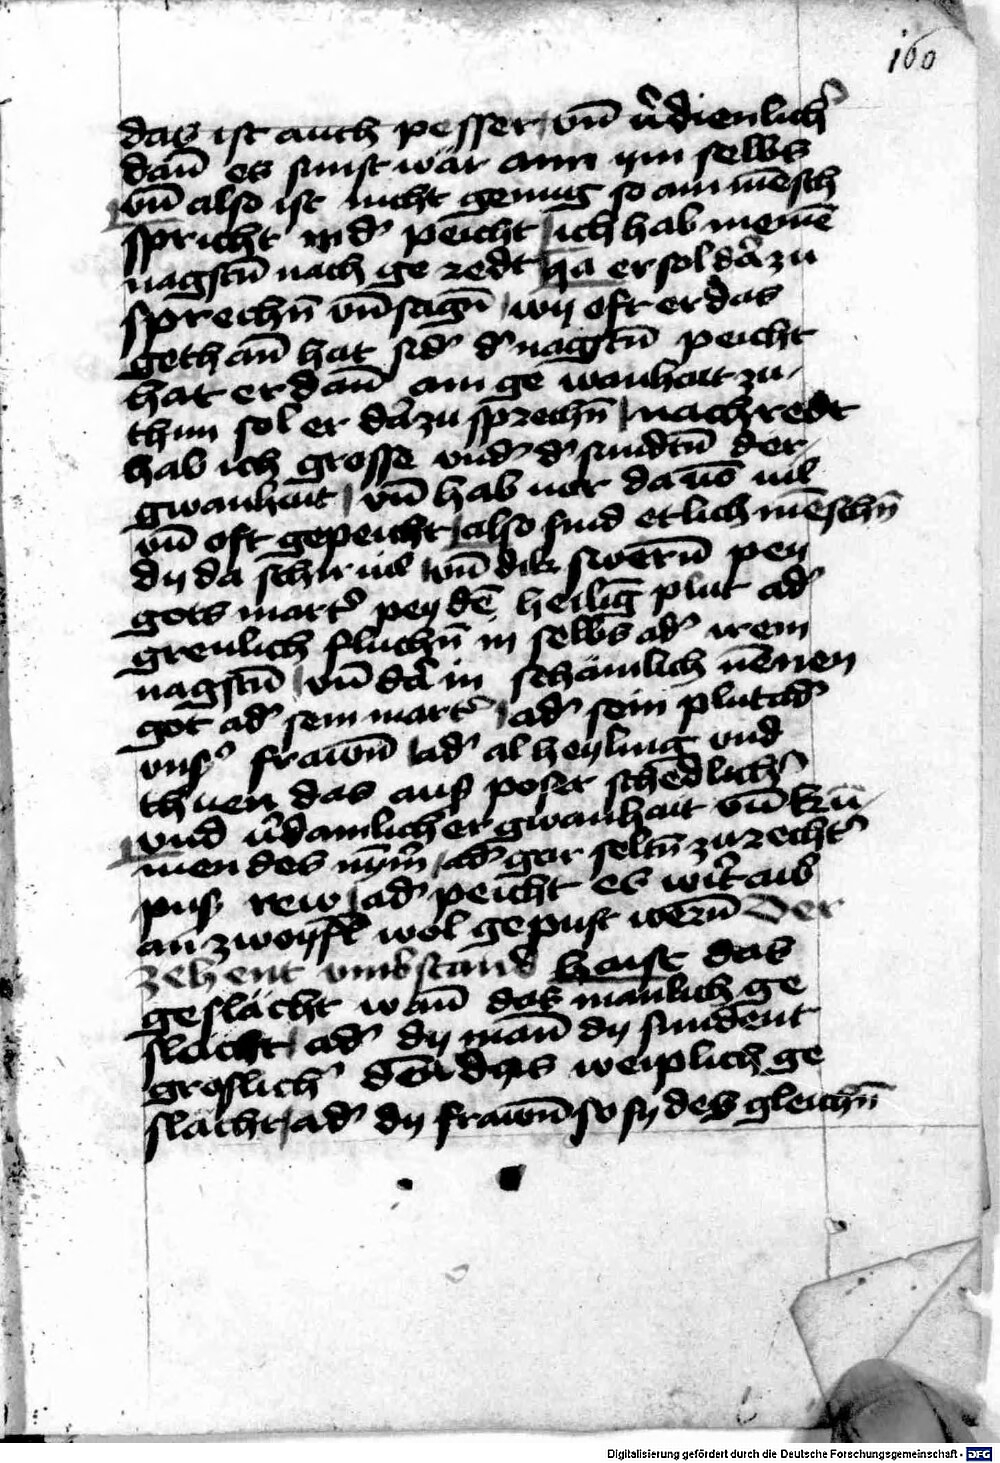 160
das ist auch pesser vn̄ v̾dienlich̾
dan̄ es sunst wär ann ym selbs
vn̄ also ist nicht genug so ain mēsch
spricht in d̾ peicht ich hab meinē
nagstn̄ nach ge redt Ja er sol dar̾zu
sprechn̄ vn̄ sagn̄ wy oft er das
gethan̄ hat sid̾ d̾ nagstn̄ peicht
hat er dan̄ ain ge wanhait zu
thun sol er dar̾zu sprechn̄ nachredt
hab ich grosse vnd̾ d̾ sundtn̄ der
gwanhait vn̄ hab mer da vō vil
vn̄ oft gepeicht also sind etlich mēschn̄
dy da schir vil vn̄ dik swern̄ pey
gots mart̾ pey dē heiliḡ plut ad̾
grenlich fluchn̄ in selbs ad̾ irem
nagstn̄ vn̄ dar̾ in schamlich nēnen
got ad̾ sein mart̾ ad̾ sein plut ad̾
vns̾ frawn̄ ad̾ al heyling vnd
thuen das aus poser schedlich̾
vnd v̾damlicher gwanhait vn̄ kū
men des nym̾ ad̾ gar seltn̄ zu recht̾
pus rew ad̾ peicht es wirt aws
an zwoyfl wol gepust wern̄ Der
zehent vmbstand haist das
geslächt wan̄ das manlich ge
slächt ad̾ dy man̄ dy sundent
groslich̾ dan̄ das weiplich ge
slächt ad̾ dy frawn̄ so sy des gleichn̄
Digitalisierung gefördert durch die Deutsche Forschungsgemeinschaft - DFG